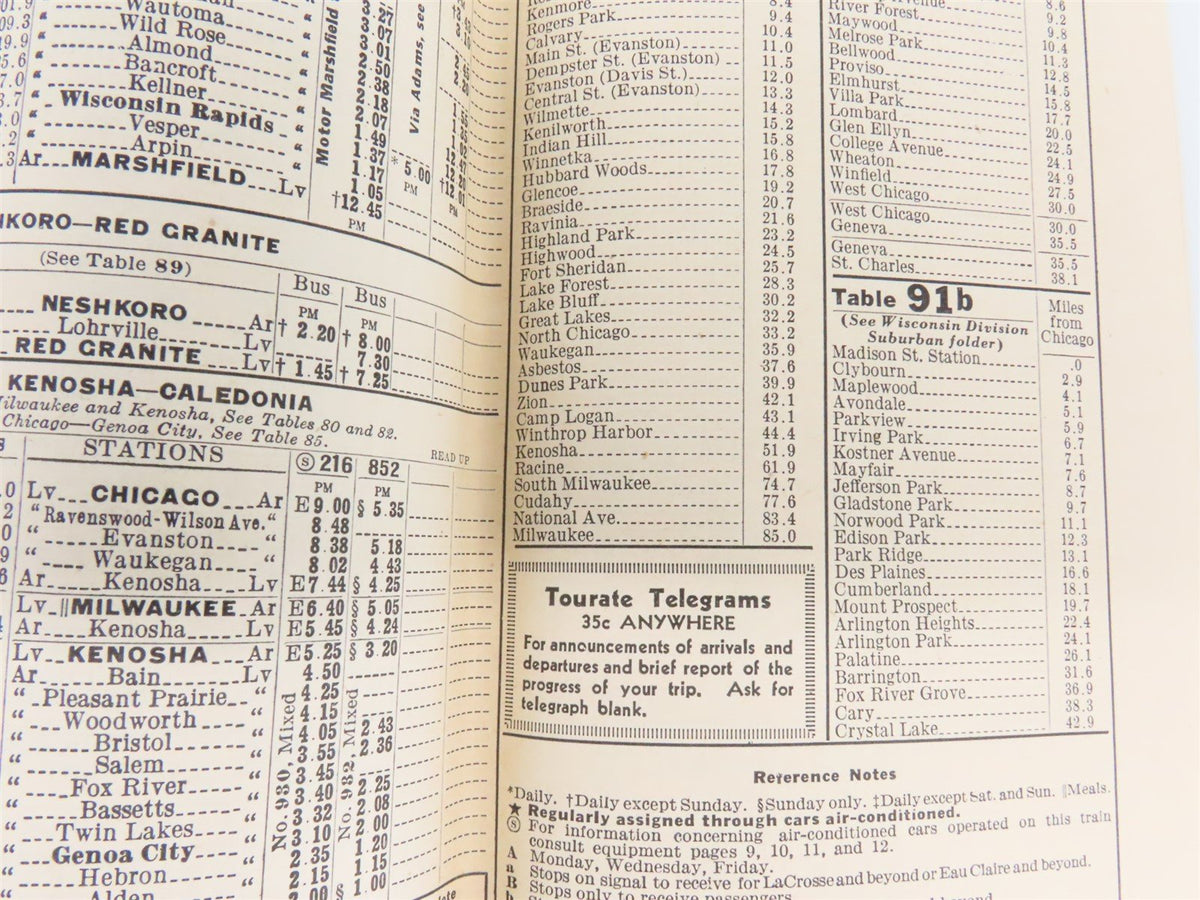 Wautoma
Wild Rose
Almond
Bancroft
Kellner
Wisconsin Rapids
Vesper
Arpin
Ar MARSHFIELD Lv
Motor Marshfield
3.27
3.07
3.01
2.50
2.38
2.18
2.07
1.49
1.37
1.17
1.05
†12.45
PM
Via Adams, see
* 5.00
PM
KORO—RED GRANITE
(See Table 89)
Bus Bus
PM PM
NESHKORO Ar † 2.20 † 8.00
Lohrville Lv 7.30
RED GRANITE Lv † 1.45 † 7.25
KENOSHA—CALEDONIA
Milwaukee and Kenosha, See Tables 80 and 82.
Chicago—Genoa City, See Table 85.
READ UP
STATIONS Ⓢ 216 852
PM PM
Lv CHICAGO Ar E9.00 § 5.35
" Ravenswood-Wilson Ave. " 8.48
" Evanston " 8.38 5.18
" Waukegan " 8.02 4.43
Ar Kenosha Lv E7.44 § 4.25
Lv ‖MILWAUKEE Ar E6.40 § 5.05
Ar Kenosha Lv E5.45 § 4.24
Lv KENOSHA Ar E5.25 § 3.20
Ar Bain Lv 4.50
" Pleasant Prairie " 4.25
" Woodworth " 4.15
" Bristol " 4.05 2.43
" Salem " 3.55 2.36
" Fox River " 3.45
" Bassetts " 3.40 2.25
" Twin Lakes " 3.32 2.08
" Genoa City " 3.10 2.00
" Hebron " 2.35 1.20
Alden 2.15 1.15
2.00 § 1.00
No. 930, Mixed
No. 932, Mixed
Kenmore 8.4
Rogers Park 9.4
Calvary 10.4
Main St. (Evanston) 11.0
Dempster St. (Evanston) 11.5
Evanston (Davis St.) 12.0
Central St. (Evanston) 13.3
Wilmette 14.3
Kenilworth 15.2
Indian Hill 15.8
Winnetka 16.8
Hubbard Woods 17.8
Glencoe 19.2
Braeside 20.7
Ravinia 21.6
Highland Park 23.2
Highwood 24.5
Fort Sheridan 25.7
Lake Forest 28.3
Lake Bluff 30.2
Great Lakes 32.2
North Chicago 33.2
Waukegan 35.9
Asbestos 37.6
Dunes Park 39.9
Zion 42.1
Camp Logan 43.1
Winthrop Harbor 44.4
Kenosha 51.9
Racine 61.9
South Milwaukee 74.7
Cudahy 77.6
National Ave. 83.4
Milwaukee 85.0
Tourate Telegrams
35c ANYWHERE
For announcements of arrivals and
departures and brief report of the
progress of your trip. Ask for
telegraph blank.
8.6
River Forest 9.2
Maywood 9.8
Melrose Park 10.4
Bellwood 11.3
Proviso 12.8
Elmhurst 14.5
Villa Park 15.8
Lombard 17.7
Glen Ellyn 20.0
College Avenue 22.5
Wheaton 24.1
Winfield 24.9
West Chicago 27.5
West Chicago 30.0
Geneva 30.0
35.5
Geneva 35.5
St. Charles 38.1
Table 91b
(See Wisconsin Division
Suburban folder)
Miles
from
Chicago
Madison St. Station .0
Clybourn 2.9
Maplewood 4.1
Avondale 5.1
Parkview 5.9
Irving Park 6.7
Kostner Avenue 7.1
Mayfair 7.6
Jefferson Park 8.7
Gladstone Park 9.7
Norwood Park 11.1
Edison Park 12.3
Park Ridge 13.1
Des Plaines 16.6
Cumberland 18.1
Mount Prospect 19.7
Arlington Heights 22.4
Arlington Park 24.1
Palatine 26.1
Barrington 31.6
Fox River Grove 36.9
Cary 38.3
Crystal Lake 42.9
Reference Notes
*Daily. †Daily except Sunday. §Sunday only. ‡Daily except Sat. and Sun. ‖Meals.
★ Regularly assigned through cars air-conditioned.
Ⓢ For information concerning air-conditioned cars operated on this train
consult equipment pages 9, 10, 11, and 12.
A Monday, Wednesday, Friday.
a Stops on signal to receive for LaCrosse and beyond or Eau Claire and beyond.
B Stops only to receive passengers.